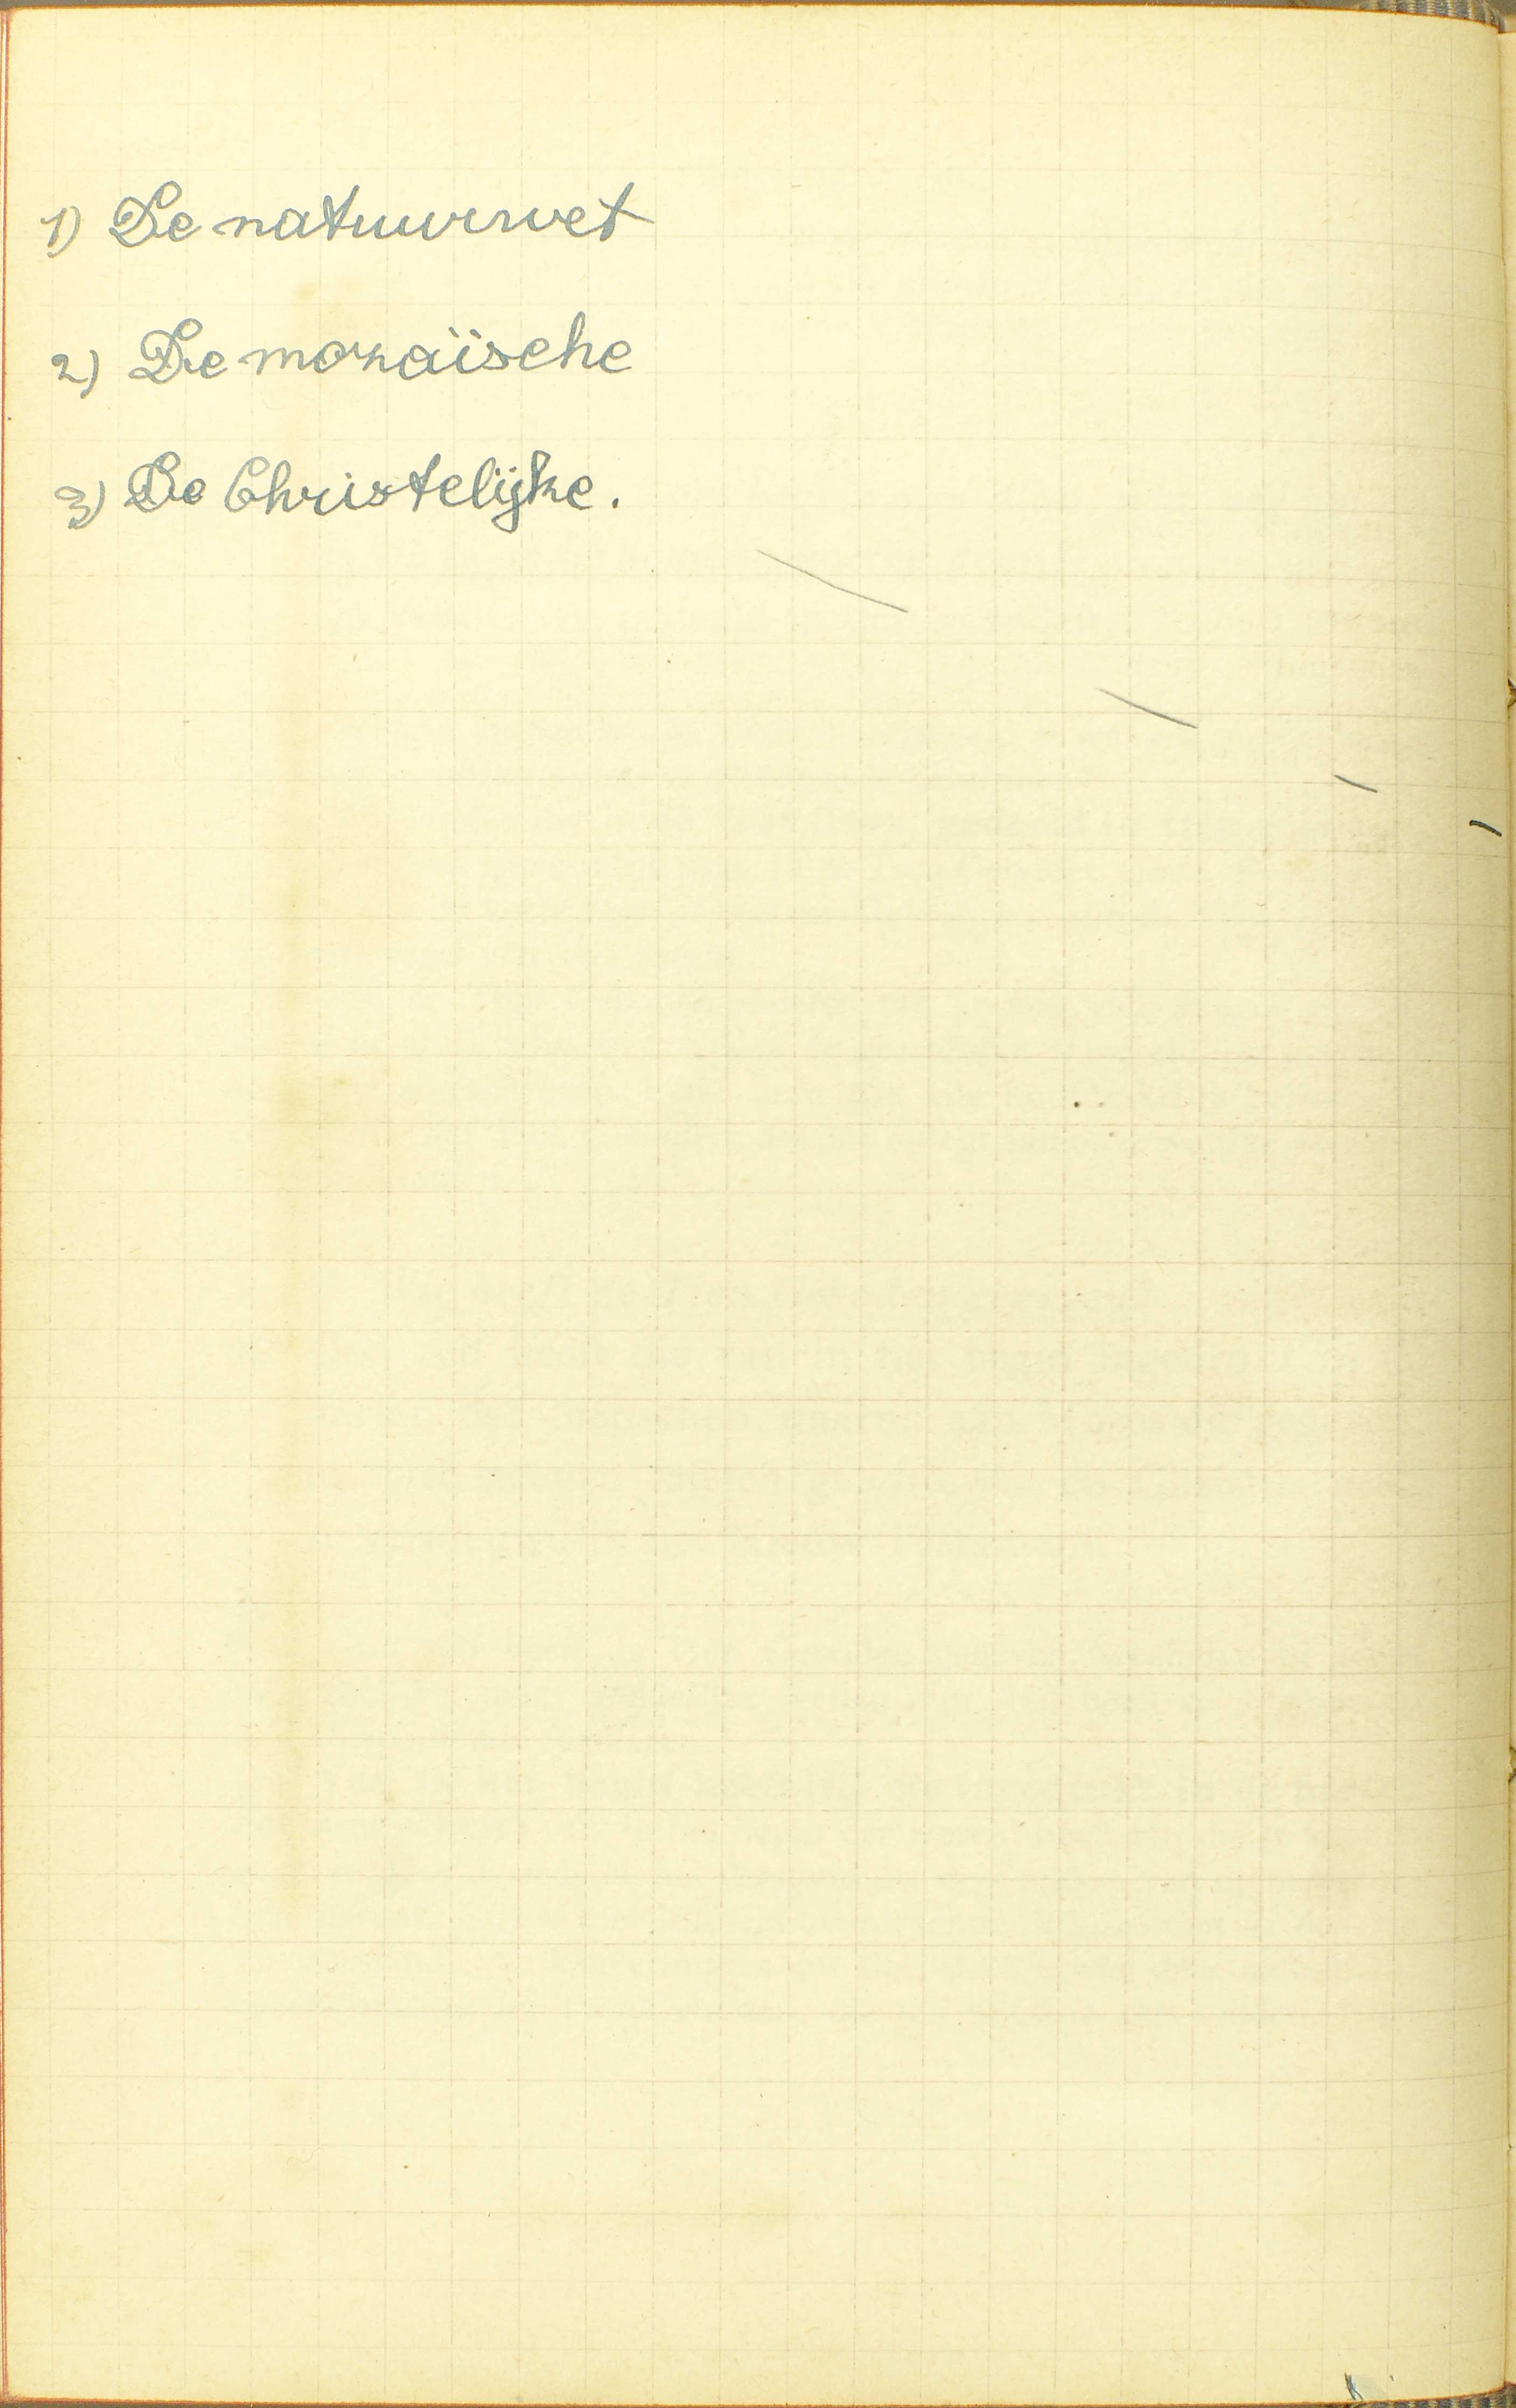 1) De natuurwet
2) De mozaïsche
3) De Christelijke.